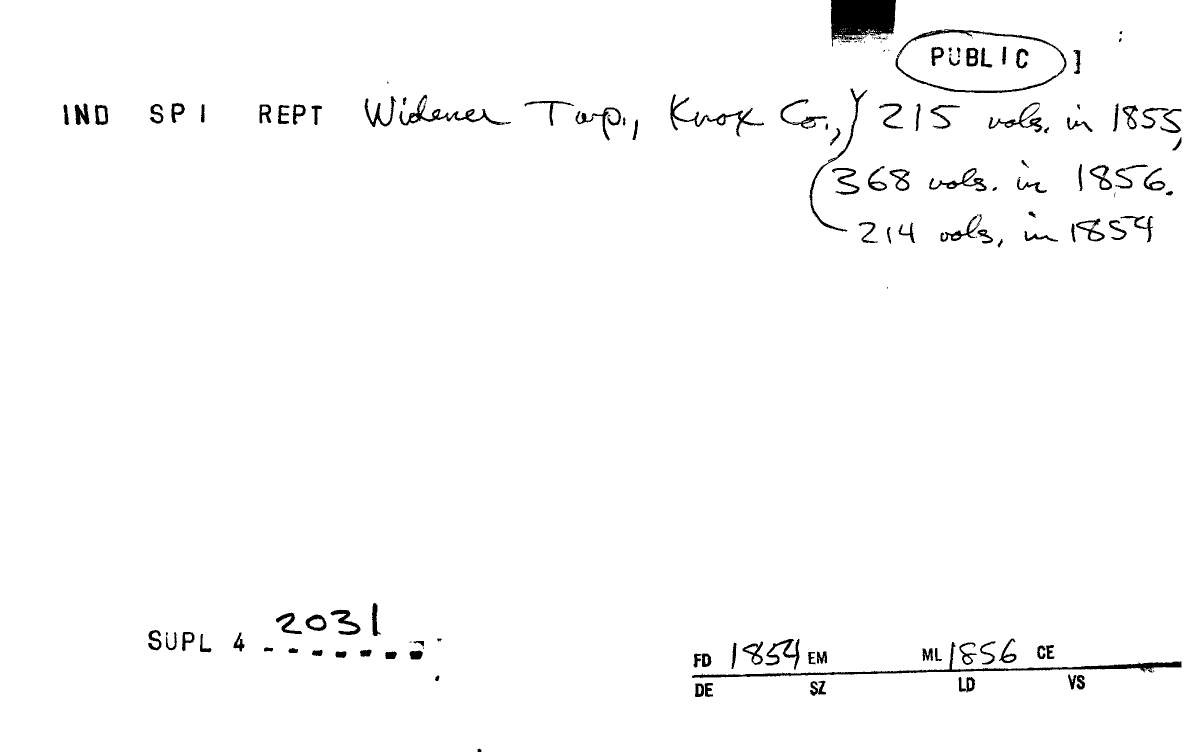 PUBLIC ]
IND SPI REPT Widener Twp., Knox Co., 215 vols. in 1855,
368 vols. in 1856.
214 vols. in 1854
SUPL 4 2031
FD 1854 EM ML 1856 CE
DE SZ LD VS